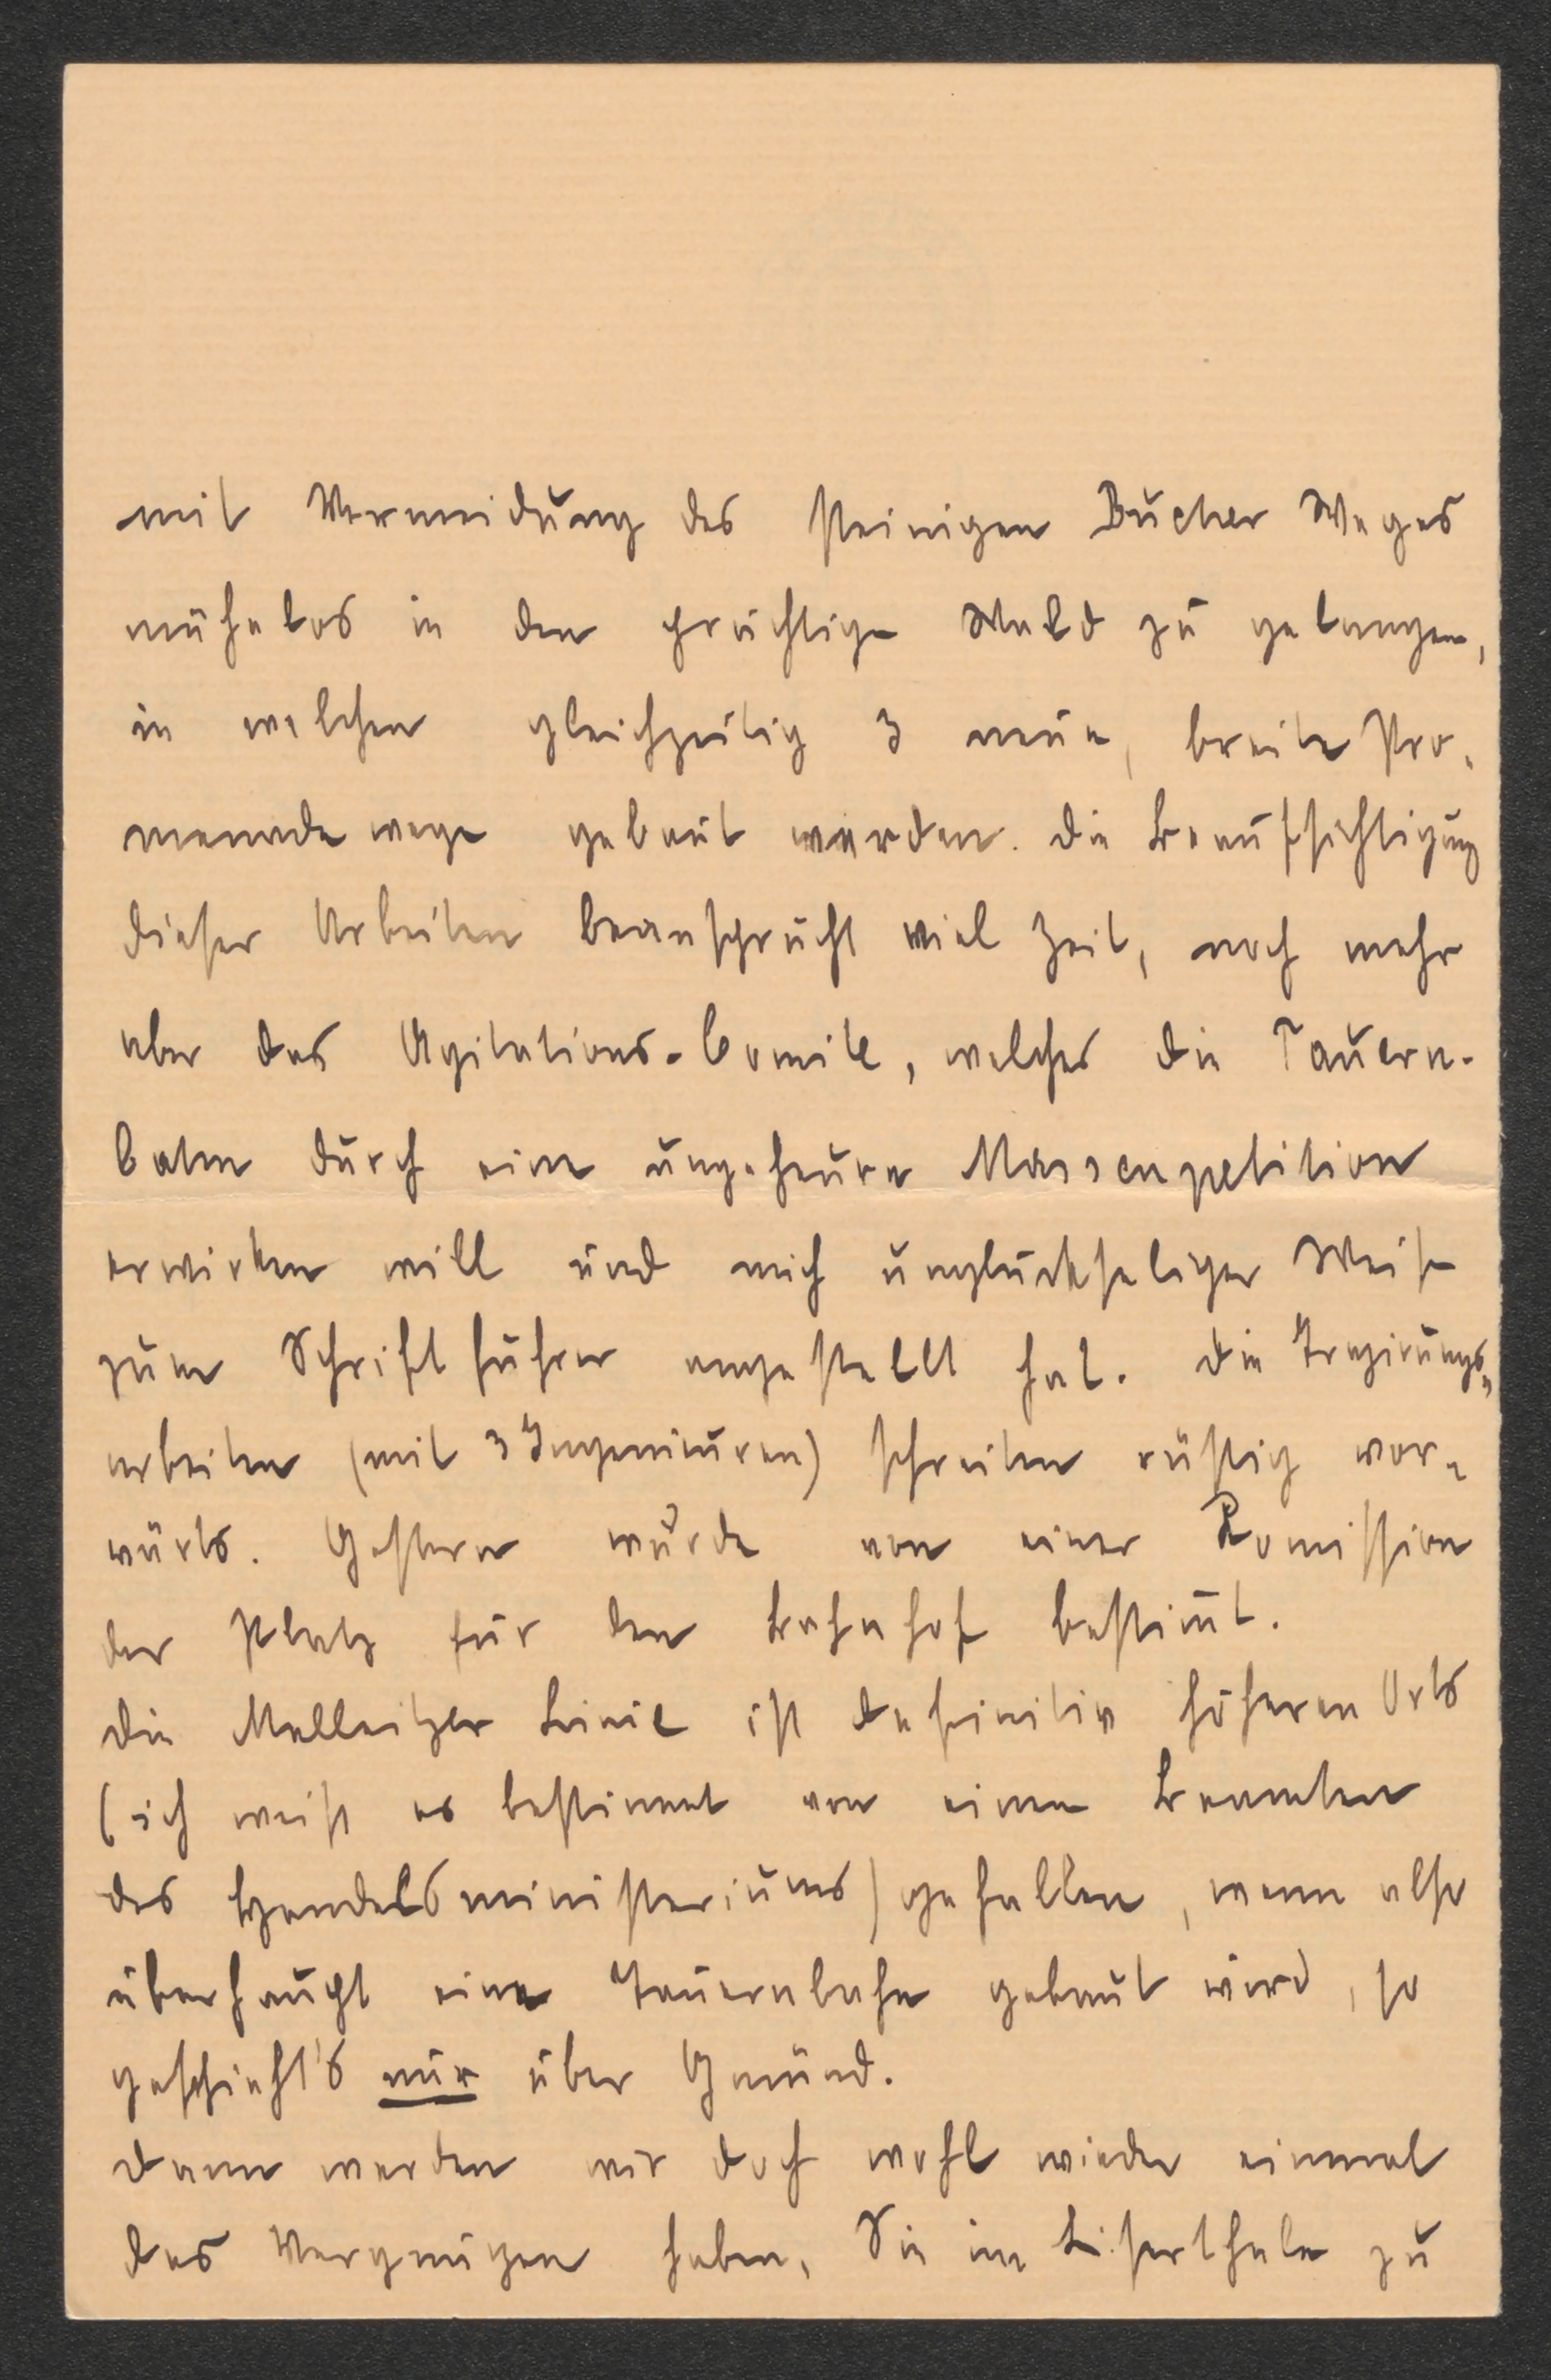 mit Vermeidung des steinigen Bucher Weges
mühelos in den prächtigen Wald zu gelangen,
in welchen gleichzeitig 3 neue, breite Pro-
menadewege gebaut werden. Die Beaufsichtigung
dieser Arbeiten beansprucht viel Zeit, noch mehr
aber das Agitations-Comite, welches die Tauern-
bahn durch eine ungeheure Massenpetition
erwirken will und mich unglückseliger Weise
zum Schriftführer angestellt hat. Die Trazirungs-
arbeiten (mit 3 Ingenieuren) schreiten rüstig vor-
wärts. Gestern wurde von einer Komission
der Platz für den Bahnhof bestim̅t.
Die Mallnitzer Linie ist definitiv höheren Orts
(ich weiß es bestimmt von einem Beamten
des Handelsministeriums) gefallen, wenn also
überhaupt eine Tauernbahn gebaut wird, so
geschieht's nur über Gmünd.
Dann werden wir doch wohl wieder einmal
das Vergnügen haben, Sie im Liserthale zu